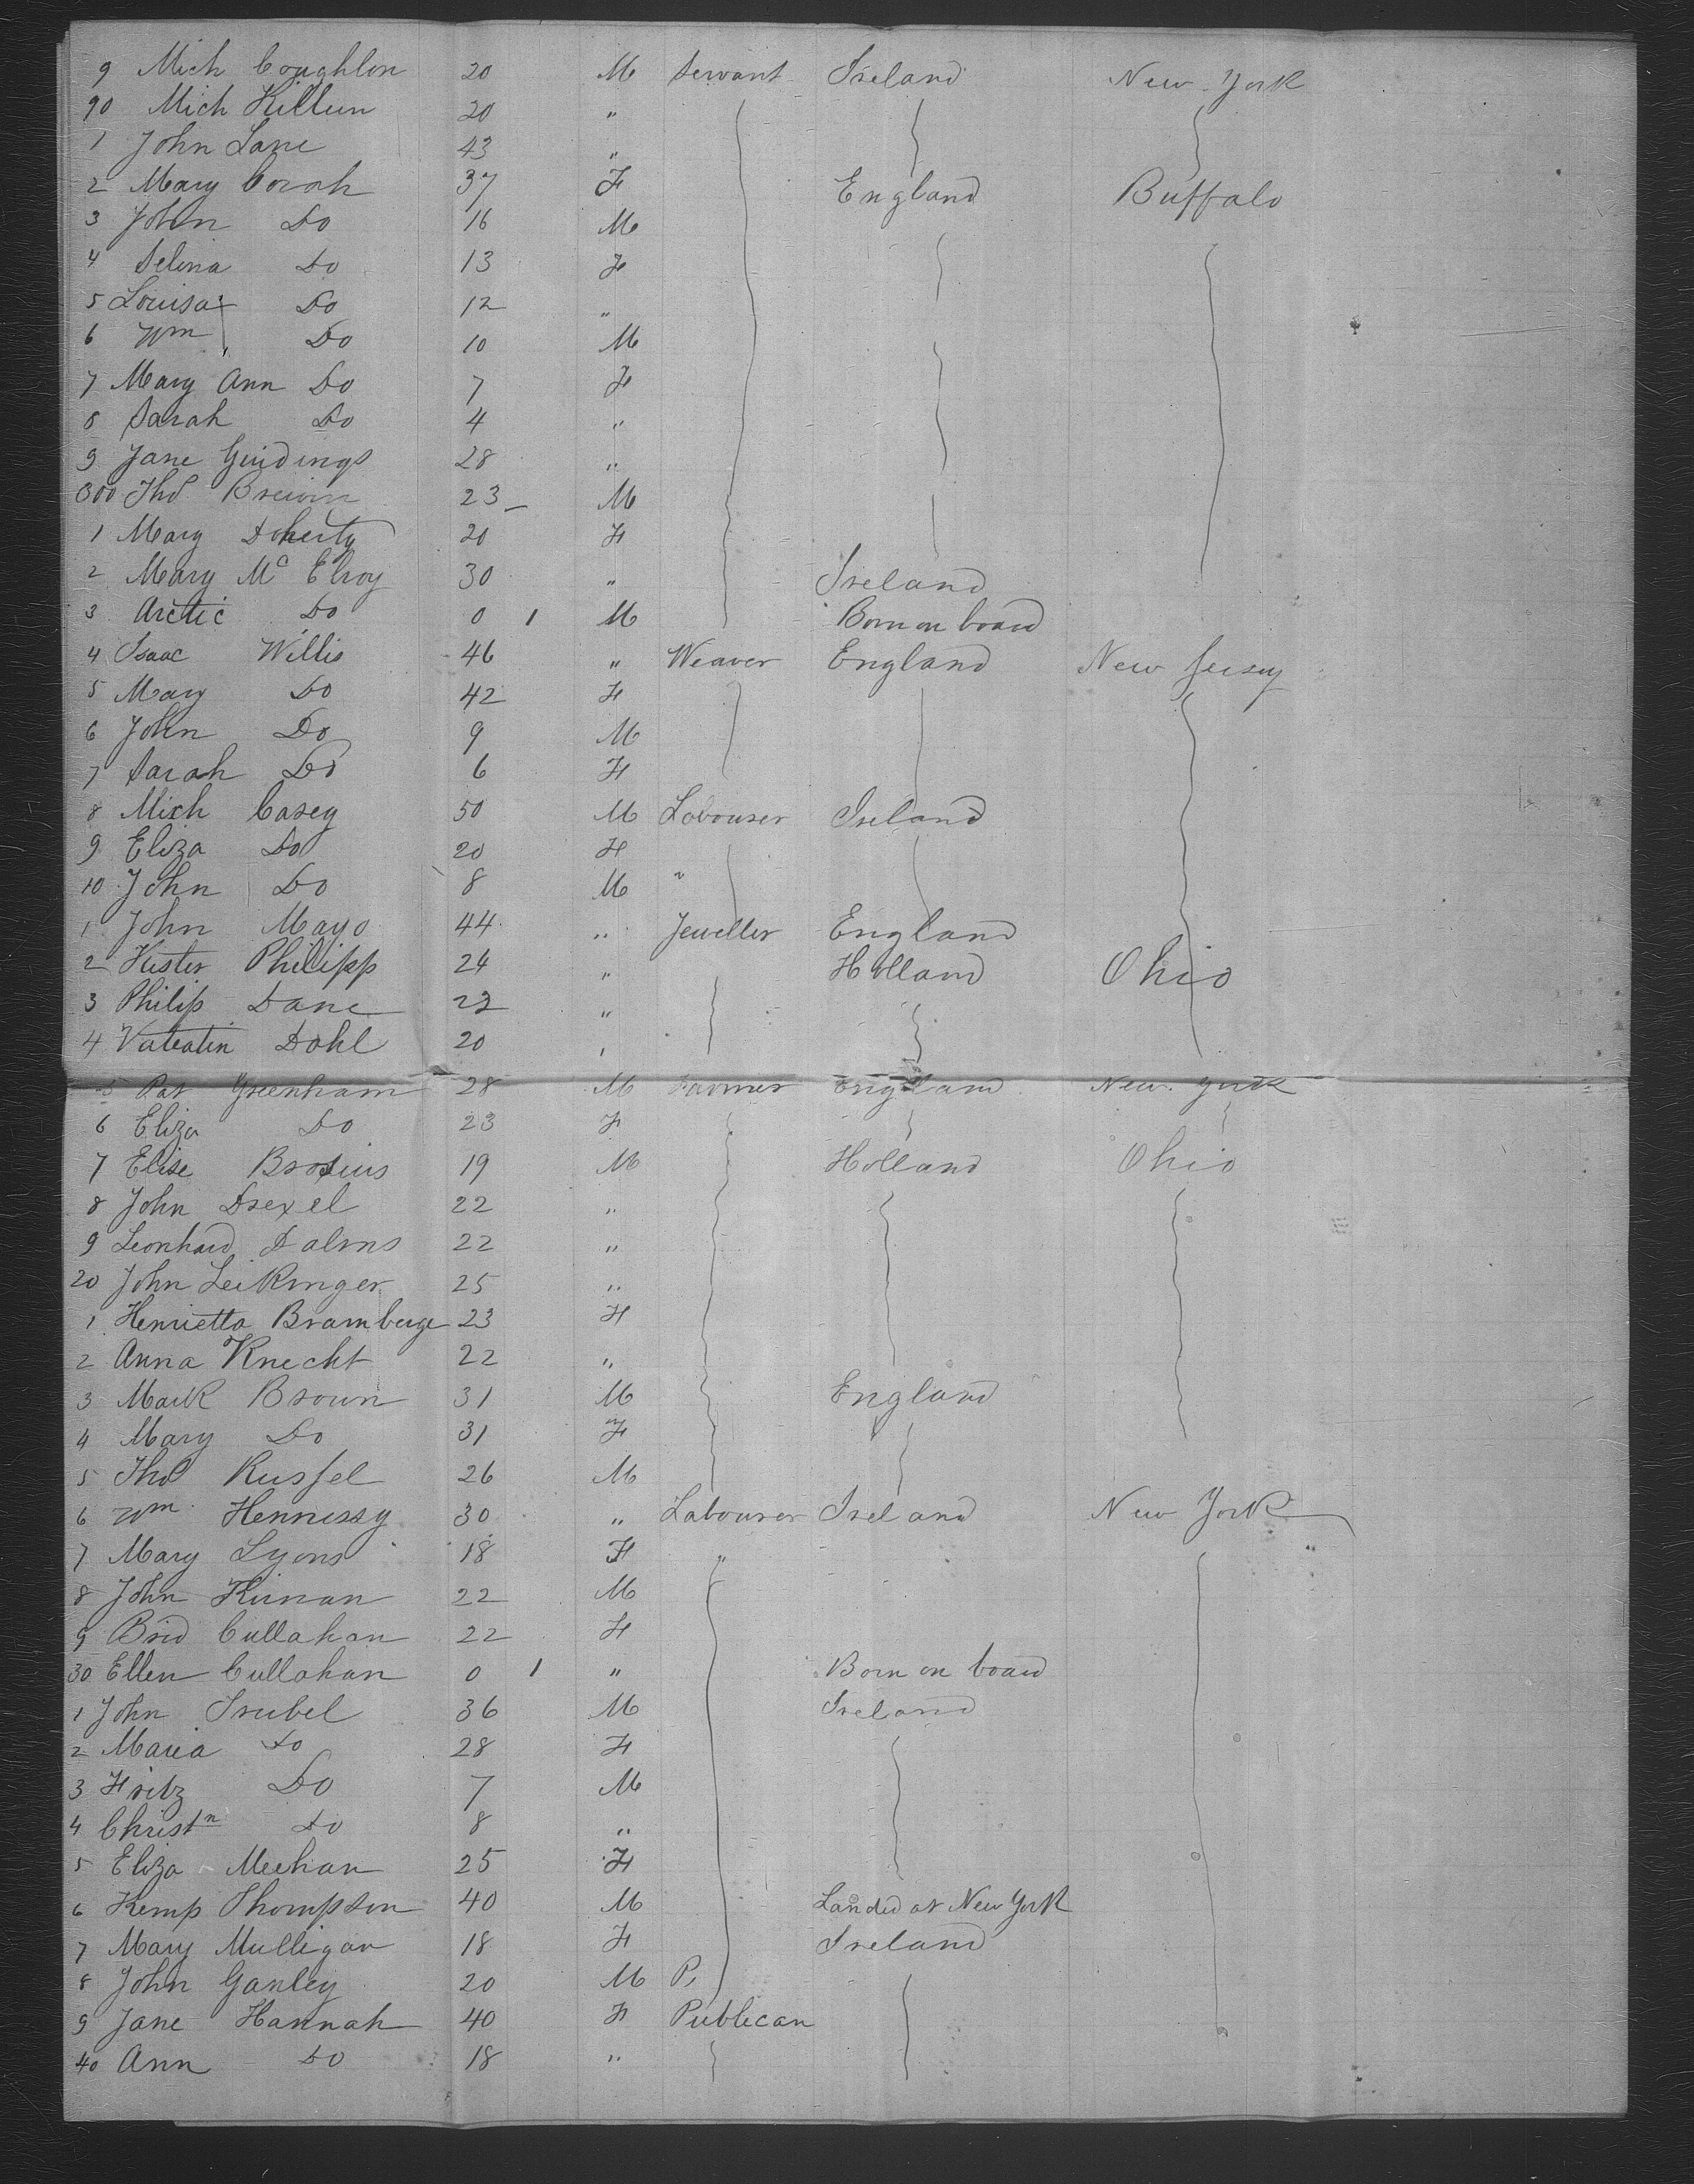 9 Mich Coughlon 20 M Servant Ireland New York
90 Mich Killeen 20 "
1 John Lane 43 "
2 Mary Corah 37 F England Buffalo
3 John Do 16 M
4 Selina Do 13 F
5 Louisa Do 12 "
6 Wm Do 10 M
7 Mary Ann Do 7 F
8 Sarah Do 4 "
9 Jane Giddings 28 "
300 Thos 23 M
1 Mary Doherty 20 F
2 Mary Mc Elroy 30 " Ireland
3 Arctic Do 0 1 M Born on board
4 Isaac Willis 46 " Weaver England New Jersey
5 Mary Do 42 F
6 John Do 9 M
7 Sarah Do 6 F
8 Mich Casey 50 M Labourer Ireland
9 Eliza Do 20 F
10 John Do 8 M "
1 John Mayo 44 " Jeweller England
2 Kister Philipp 24 " Holland Ohio
3 Philip Dane 22 "
4 Dahl 20 "
5 Pat Greenham 28 M Farmer England New York
6 Eliza Do 23 F
7 Elise Brosius 19 M Holland Ohio
8 John Drexel 22 "
9 Leonhard 22 "
20 John Leikinger 25 "
1 Henrietta Bramberge 23 F
2 Anna Knecht 22 "
3 Mark Brown 31 M England
4 Mary Do 31 F
5 Thos Russel 26 M
6 Wm Hennessy 30 " Labourer Ireland New York
7 Mary Lyons 18 F "
8 John Kinan 22 M
9 Brid Cullahan 22 F
30 Ellen Cullahan 0 1 " Born on board
1 John Trubel 36 M Ireland
2 Maria Do 28 F
3 Fritz Do 7 M
4 Christn Do 8 "
5 Eliza Meehan 25 F
6 Kemp Thompson 40 M Landed at New York
7 Mary Mulligan 18 F Ireland
8 John Ganley 20 M P
9 Jane Hannah 40 F Publican
40 Ann Do 18 "